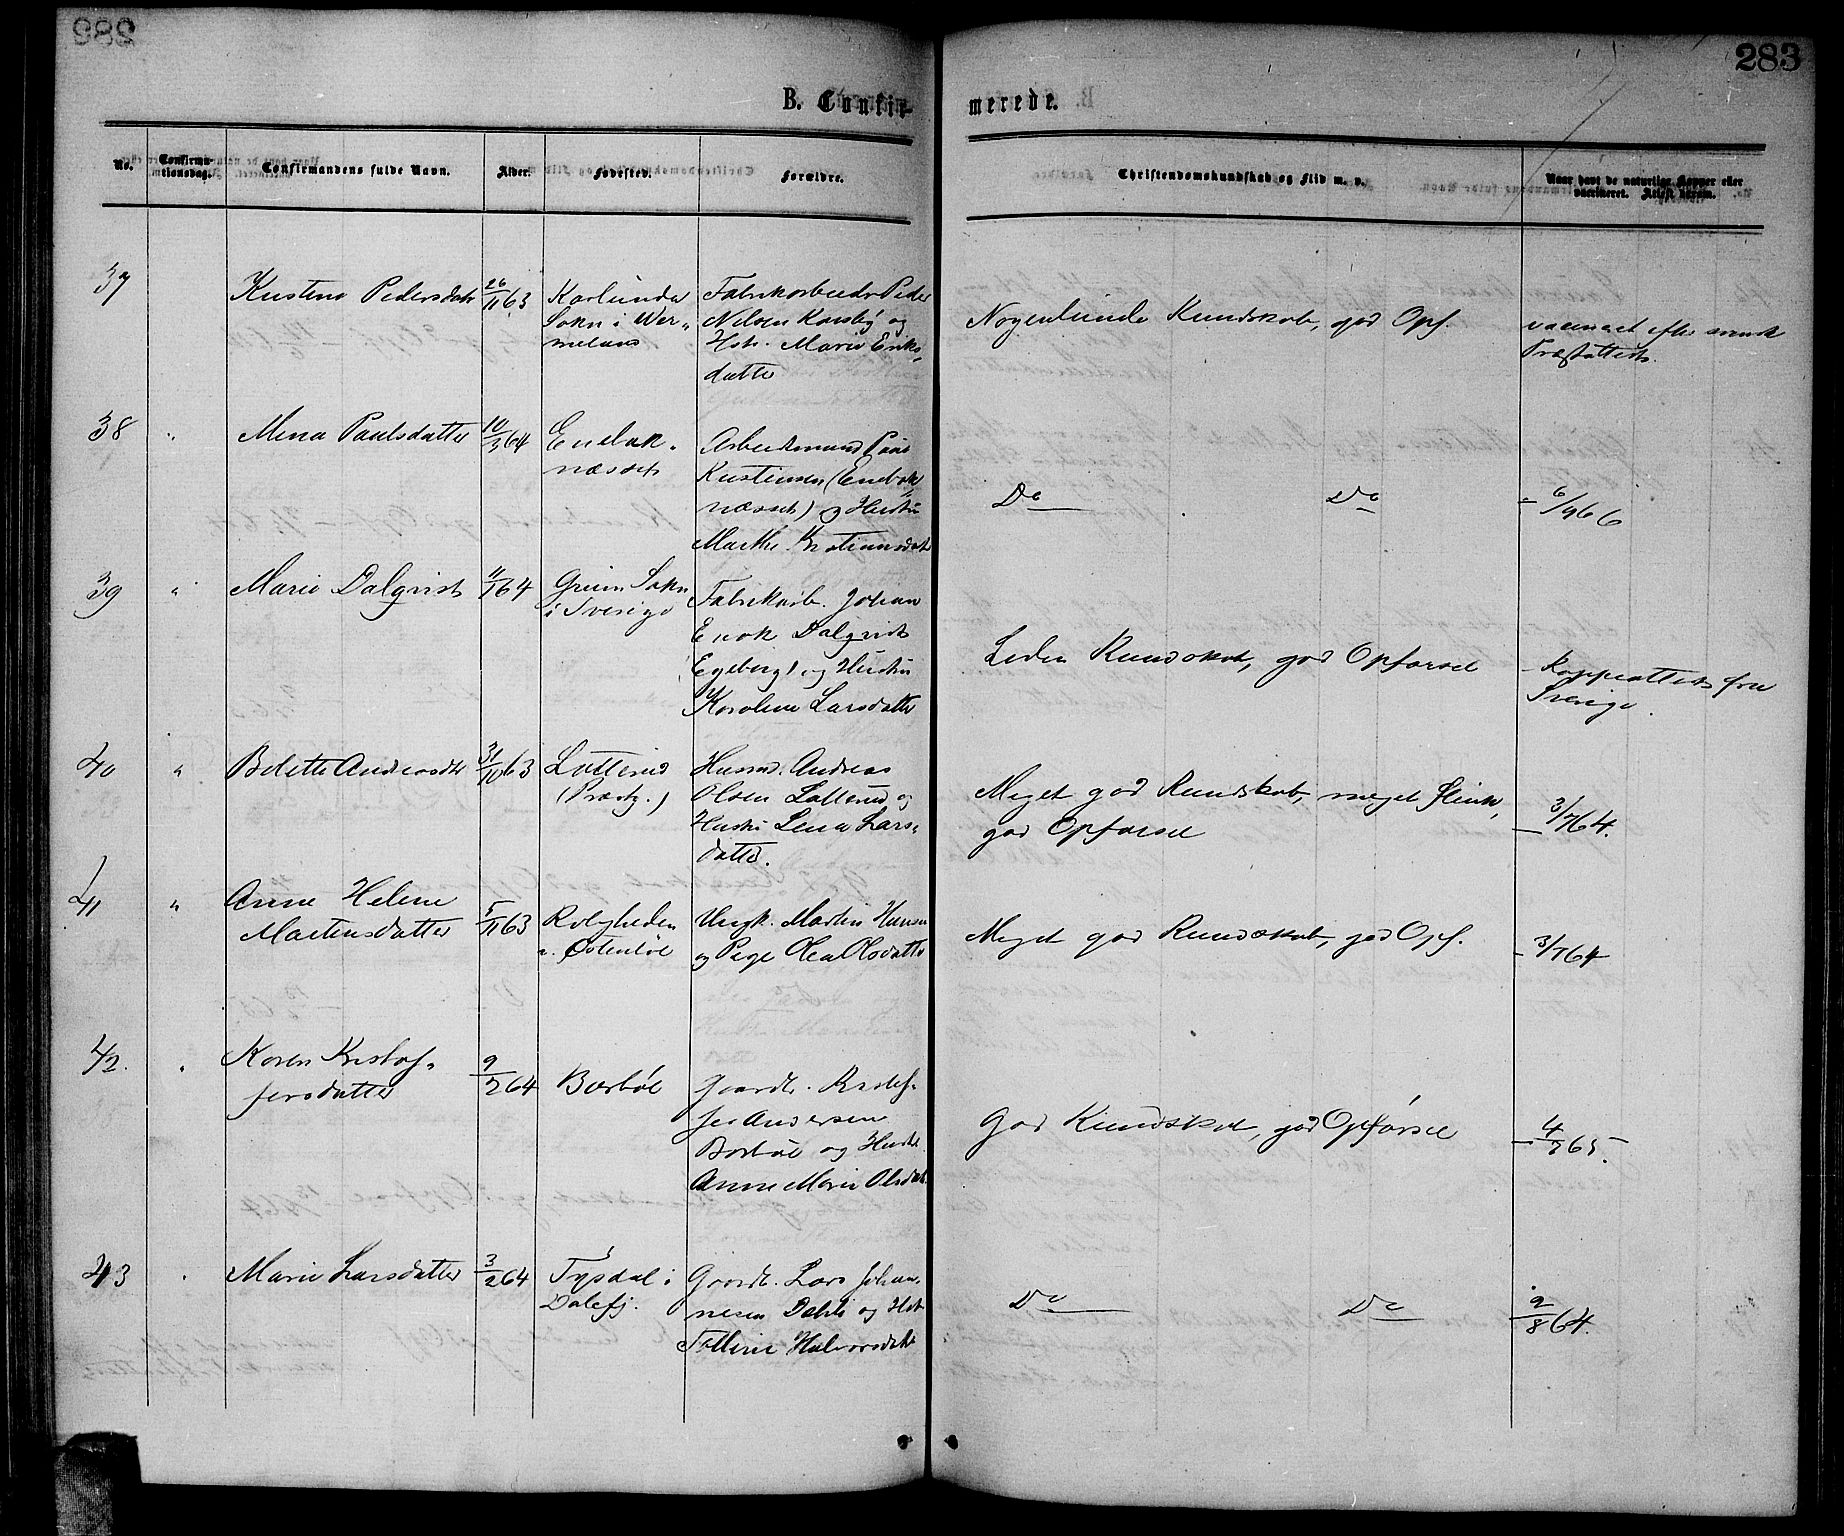 283
B. Confirmerede.
No.
Confirmationsdag.
Confirmandens fulde Navn.
Alder.
Fødested.
Forældre.
Christendomskundskab og Flid m. v.
Naar havt de naturlige Kopper eller
vaccineret. Attest derom.
37
Pedersdatr
26/11 63
Sokn i Wer-
Fabrikarbeidr Peder
Nilsen
og
Hstr. Marie Eriks-
datter
Nogenlunde Kundskab, god Opf.
38
"
Mina Paulsdatter
10/3 64
Enebak-
næsset
Arbeidsmand
(Enebak-
næsset) og Hustru
Marthe
Do
Do
39
"
Marie Dalqvist
11/1 64
Sokn
i Sverige
Fabrikarb. Johan
Enok Dalqvist
Egeberg og Hustru
Karoline Larsdatter
Liden Kundskab, god Opførsel
Koppeattest fra
Sverige.
40
"
31/10 63
Lotterud
(Præstg.)
Husmd. Andreas
Olsen Lotterud og
Hustru Lena Lars-
datter.
Meget god Kundskab, meget flink,
god Opførsel
3/7 64.
41
"
Anne Helene
Martinsdatter
5/11 63
Roligheden
u. Østenbøl
Ungk. Martin Hansen
og Pige Olea Olsdatter
Meget god Kundskab, god Opf.
3/7 64
42.
"
Karen Kristof-
fersdatter
9/2 64
Gaardb. Kristof-
fer Andersen
og Hustr.
Anne Marie Olsdatr.
God Kundskab, god Opførsel
4/7 65.
43
"
Marie Larsdatter
3/2 64
Tysdal i
Dalefj.
Gaardb. Lars Johan-
nesen Dahli og Hstr
Halvorsdatr
Do
Do
9/8 64.